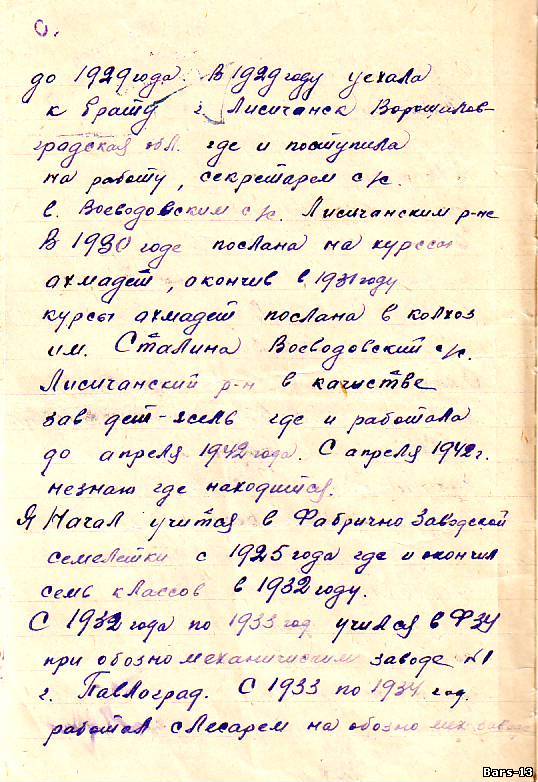 до 1929 года. В 1929 году уехала
к брату г. Лисичанск Ворошилов-
градская обл. где и поступила
на работу, секретарем с/с.
в. Воеводовским с/с. Лисичанским р-не
В 1930 годе послана на курссы
ахмадет, окончив в 1931 году
курсы ахмадет послана в колхоз
им. Сталина Воеводовский с/с.
Лисичанский р-н в качистве
зав дет-ясель где и работала
до апреля 1942 года. С апреля 1942 г.
незнаю где находится.
Я Начал учится в Фабрично Заводской
семелетки с 1925 года где и окончил
семь классов в 1932 году.
С 1932 года по 1933 год учился в ФЗУ
при обозно механичиским заводе №1
г. Павлоград. С 1933 по 1934 год.
работал слесарем на обозно мех. заводе
Bars-13